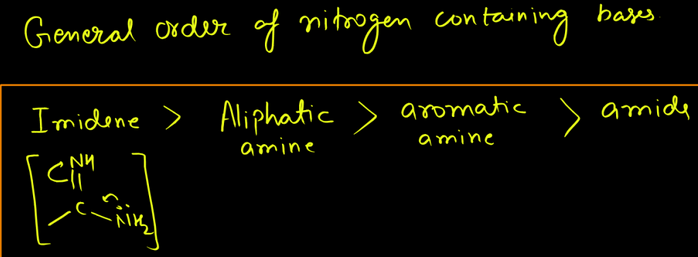 General order of nitrogen containing bases.
Imidene > Aliphatic amine > aromatic amine > amide
NH
C
NH2